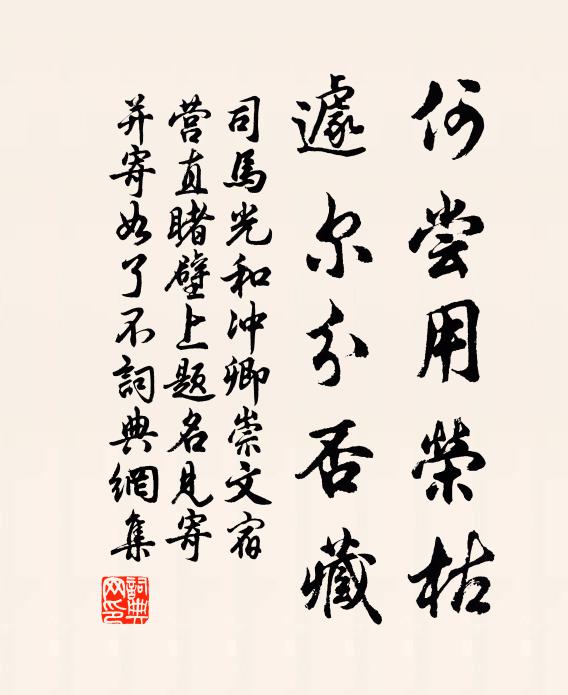 何尝用榮枯
遽尔分否藏
司馬光和冲卿崇文宿
营直睹壁上题名見寄
并寄如了不詞典網集
詞典网印